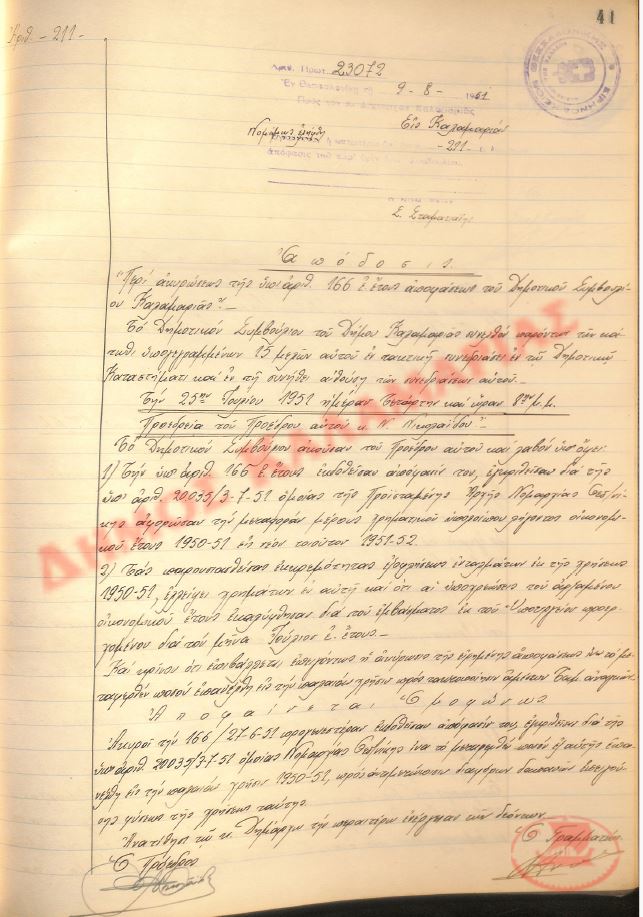 41
Ἀριθ. - 211 -
Ἀριθ. Πρωτ. 23072
Ἐν Θεσσαλονίκῃ τῇ 9-8-1951
Πρὸς τὸν κ. Δήμαρχον Καλαμαριᾶς
Νομίμως ἐλήφθη
Εἰς Καλαμαριὰν
- 211 -
Σ. Σταματιάδης
Ἀπόδοσις
"Περὶ ἀκυρώσεως τῆς ὑπ' ἀριθ. 166 ἐ. ἔτους ἀποφάσεως τοῦ Δημοτικοῦ Συμβουλί-
ου Καλαμαριᾶς". -
Τὸ Δημοτικὸν Συμβούλιον τοῦ Δήμου Καλαμαριᾶς συνελθὸν παρόντων τῶν κά-
τωθι ὑπογεγραμμένων 15 μελῶν αὐτοῦ ἐν τακτικῇ συνεδριάσει ἐν τῷ Δημοτικῷ
Καταστήματι καὶ ἐν τῇ συνήθει αἰθούσῃ τῶν συνεδριάσεων αὐτοῦ. -
Τὴν 25ην Ἰουλίου 1951 ἡμέραν Τετάρτην καὶ ὥραν 8ην μ.μ.
Προεδρεία τοῦ Προέδρου αὐτοῦ κ. Ν. Νικολαΐδου. -
Τὸ Δημοτικὸν Συμβούλιον ἀκοῦσαν τοῦ Προέδρου αὐτοῦ καὶ λαβὸν ὑπ' ὄψει:
1) Τὴν ὑπ' ἀριθ. 166 ἐ. ἔτους ἐκδοθεῖσαν ἀπόφασίν του, ἐγκριθεῖσαν διὰ τῆς
ὑπ' ἀριθ. 20035/3-7-51 ὁμοίας τῆς Προϊσταμένης Ἀρχῆς Νομαρχίας Θεσ/νί-
κης ἀφορῶσαν τὴν μεταφορὰν μέρους χρηματικοῦ ὑπολοίπου λήγοντος οἰκονομι-
κοῦ ἔτους 1950-51 εἰς νέον τοιοῦτον 1951-52.
2) Τὰς παρουσιασθείσας ἐκκρεμότητας ἐξοφλήσεως ἐνταλμάτων ἐκ τῆς χρήσεως
1950-51, ἐλλείψει χρημάτων ἐν αὐτῇ καὶ ὅτι αἱ ὑποχρεώσεις τοῦ ἀρξαμένου
οἰκονομικοῦ ἔτους ἐκαλύφθησαν διὰ τοῦ ἐμβάσματος ἐκ τοῦ Ὑπουργείου προερ-
χομένου διὰ τὸν μῆνα Ἰούλιον ἐ. ἔτους. -
Καὶ κρῖνον ὅτι ἐπιβάλλεται ἐπειγόντως ἡ ἀκύρωσις τῆς εἰρημένης ἀποφάσεως ἵνα τὸ με-
ταφερθὲν ποσὸν ἐπανέλθῃ εἰς τὴν παλαιὰν χρῆσιν πρὸς τακτοποίησιν ἀμέσων Ταμ. ἀναγκῶν
Ἀποφαίνεται Ὁμοφώνως
Ἀκυροῖ τὴν 166/27-6-51 προγενεστέραν ἐκδοθεῖσαν ἀπόφασίν του, ἐγκριθεῖσαν διὰ τῆς
ὑπ' ἀριθ. 20035/3-7-51 ὁμοίας Νομαρχίας Θεσ/νίκης ἵνα τὸ μεταφερθὲν ποσὸν ἐξ αὐτῆς ἐπα-
νέλθῃ εἰς τὴν παλαιὰν χρῆσιν 1950-51, πρὸς ἀντιμετώπισιν διαφόρων δαπανῶν ἐπειγού-
σης φύσεως τῆς χρήσεως ταύτης.
Ἀνατίθησι τῷ κ. Δημάρχῳ τὴν περαιτέρω ἐνέργειαν τῶν δεόντων.
Ὁ Πρόεδρος
Ὁ Γραμματεύς
ΔΗΜΟΣ ΚΑΛΑΜΑΡΙΑΣ